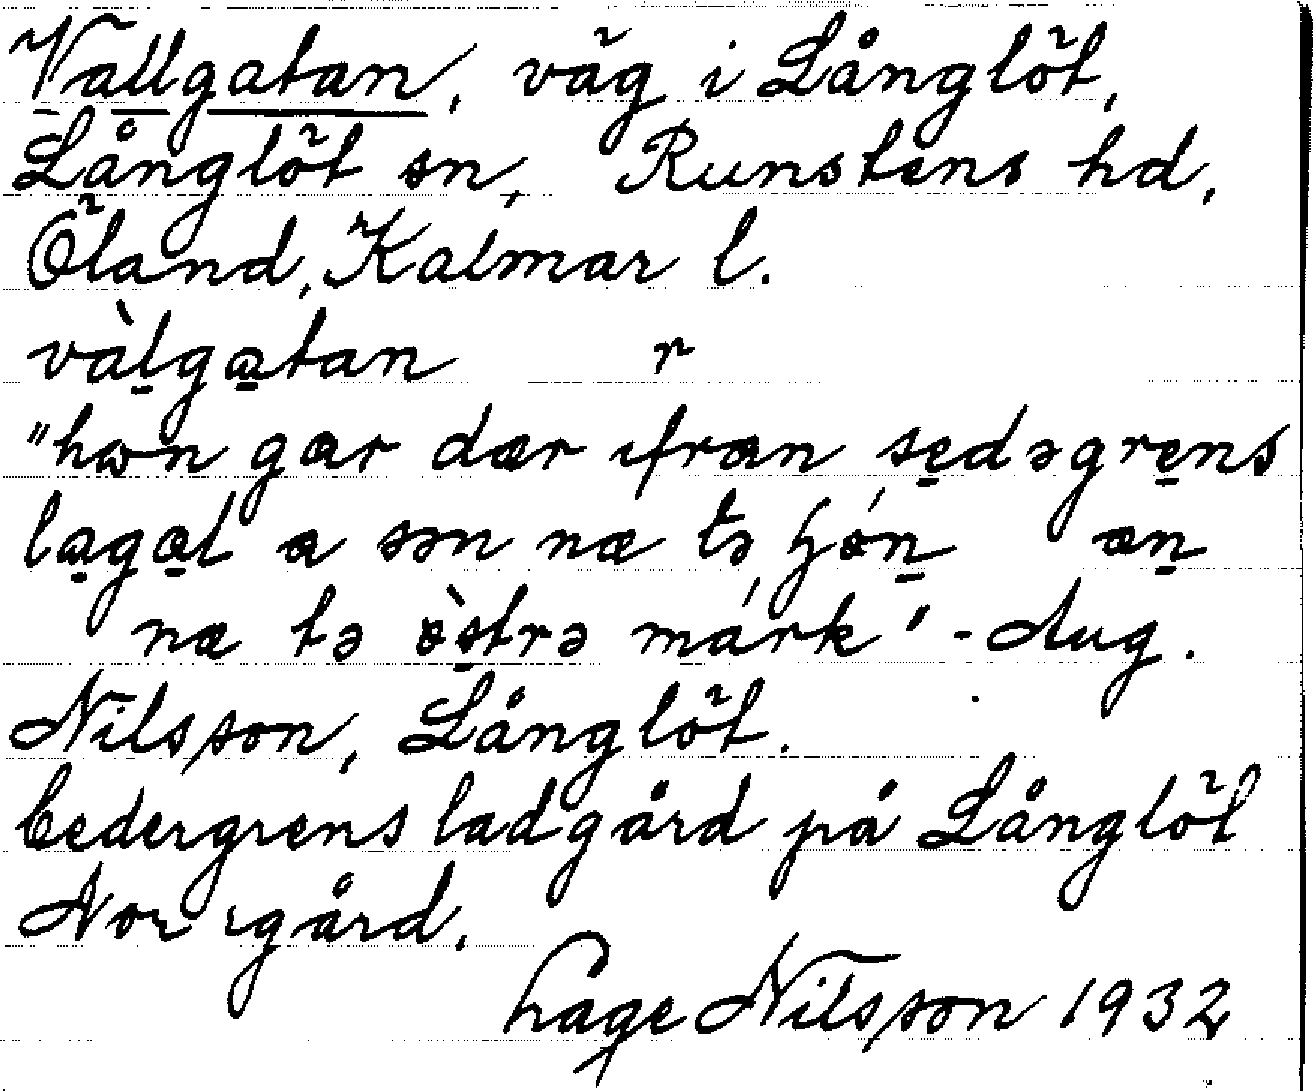 Vallgatan, väg i Långlöt,
Långlöt sn, Runstens hd,
Öland, Kalmar l.
vàl̠ga̠tan r
"hωn gαr dær ıfrαn se̠dəgre̠ns
la̠ga̠l α sən næ tə ən̠
næ tə ös̠trə márk" - Aug.
Nilsson, Långlöt.
Cedergrens ladgård på Långlöt
Norrgård.
Lage Nilsson 1932